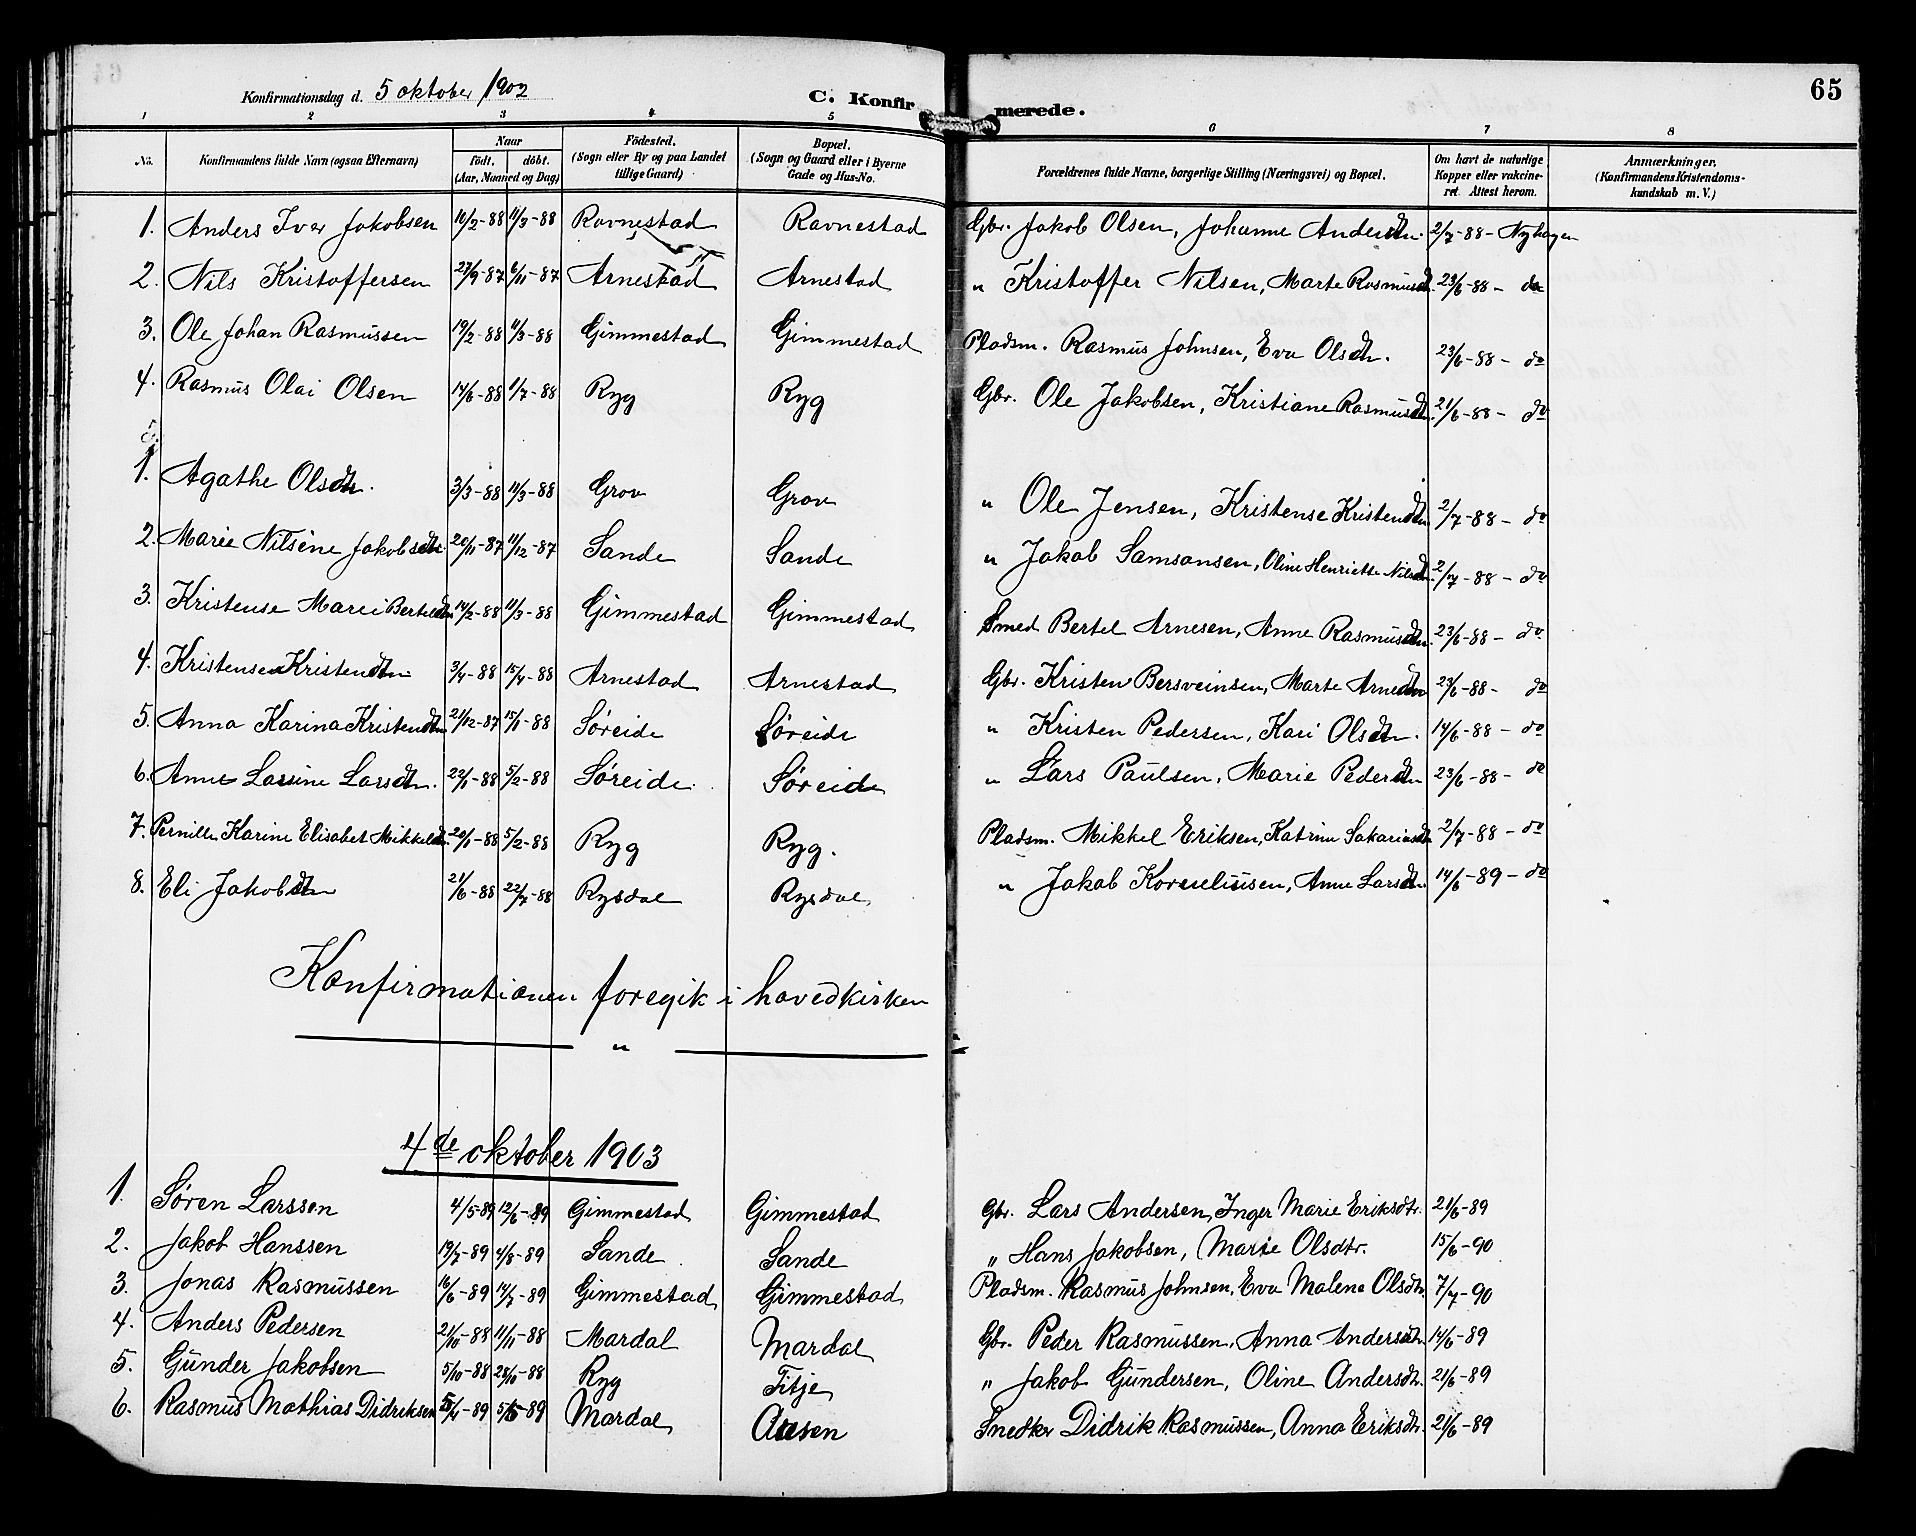 65
Konfirmationsdag d. 5 oktober 1902 C. Konfirmerede.
1 2 3 4 5 6 7 8
No. Konfirmandens fulde Navn (ogsaa Efternavn) Naar født. døbt. (Aar, Maaned og Dag) Fødested. (Sogn eller By og paa Landet tillige Gaard) Bopæl. (Sogn og Gaard eller i Byerne Gade og Hus-No. Forældrenes fulde Navne, borgerlige Stilling (Næringsvei) og Bopæl. Om havt de naturlige Kopper eller vakcineret. Attest herom. Anmærkninger. (Konfirmandens Kristendomskundskab m. V.)
1. Anders Iver Jakobsen 16/2-88 11/3-88 Ravnestad Ravnestad Gbr. Jakob Olsen, Johanne Andersdtr. 2/7-88 - Nyhagen
2. Nils Kristoffersen 27/9-87 6/11-87 Arnestad Arnestad " Kristoffer Nilsen, Marte Rasmusdtr. 23/6-88 - do
3. Ole Johan Rasmussen 19/2-88 11/3-88 Gimmestad Gimmestad Pladsm. Rasmus Johnsen, Eva Olsdtr. 23/6-88 - do
4. Rasmus Olai Olsen 14/6-88 1/7-88 Ryg Ryg Gbr. Ole Jakobsen, Kristiane Rasmusdtr. 21/6-88 - do
1. Agathe Olsdtr. 3/3-88 11/3-88 Grov Grov " Ole Jensen, Kristense Kristendtr. 2/7-88 - do
2. Marie Nilsine Jakobsdtr. 20/11-87 11/12-87 Sande Sande " Jakob Samsonsen, Oline Henriette Nilsdtr. 2/7-88 - do
3. Kristense Marie Berteldtr. 14/2-88 11/3-88 Gimmestad Gimmestad Smed Bertel Arnesen, Anne Rasmusdtr. 23/6-88 - do
4. Kristense Kristendtr. 3/4-88 15/4-88 Arnestad Arnestad Gbr. Kristen Bersveinsen, Marte Arnedtr. 23/6-88 - do
5. Anna Karina Kristendtr. 21/12-87 15/1-88 Søreide Søreide " Kristen Pedersen, Kari Olsdtr. 14/6-88 - do
6. Anne Lassine Larsdtr. 22/1-88 5/2-88 Søreide Søreide " Lars Paulsen, Marie Pedersdtr. 23/6-88 - do
7. Pernille Karine Elisabet Mikkeldtr. 20/1-88 5/2-88 Ryg Ryg. Pladsm. Mikkel Eriksen, Katrine Sakariasdtr. 2/7-88 - do
8. Eli Jakobsdtr. 21/6-88 22/7-88 Rysdal Rysdal " Jakob Korneliussen, Anne Larsdtr. 14/6-89 - do
Konfirmationen foregik i hovedkirken
"
4de oktober 1903
1. Søren Larssen 4/5-89 12/6-89 Gimmestad Gimmestad Gbr. Lars Andersen, Inger Marie Eriksdtr. 21/6-89
2. Jakob Hanssen 19/7-89 4/8-89 Sande Sande " Hans Jakobsen, Marie Olsdtr. 15/6-90
3. Jonas Rasmussen 16/6-89 14/7-89 Gimmestad Gimmestad Pladsm. Rasmus Johnsen, Eva Malene Olsdtr. 7/7-90
4. Anders Pedersen 21/10-88 11/11-88 Mardal Mardal Gbr. Peder Rasmussen, Anna Andersdtr. 14/6-89
5. Gunder Jakobsen 5/10-88 28/10-88 Ryg Fitje " Jakob Gundersen, Oline Andersdtr. 21/6-89
6. Rasmus Mathias Didriksen 5/4-89 5/5-89 Mardal Aasen Snedker Didrik Rasmussen, Anna Eriksdtr. 21/6-89